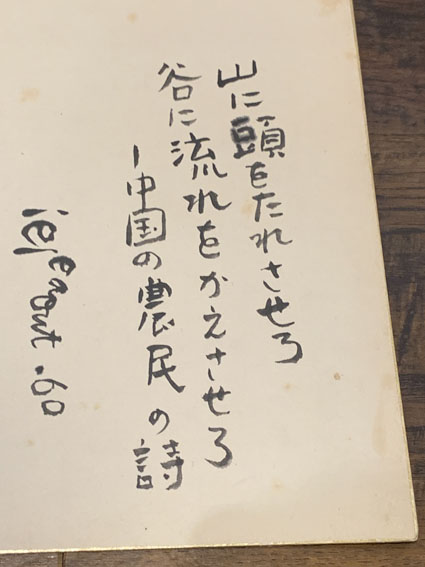 山に頭をたれさせろ
谷に流れをかえさせろ
ー中国の農民の詩
.60